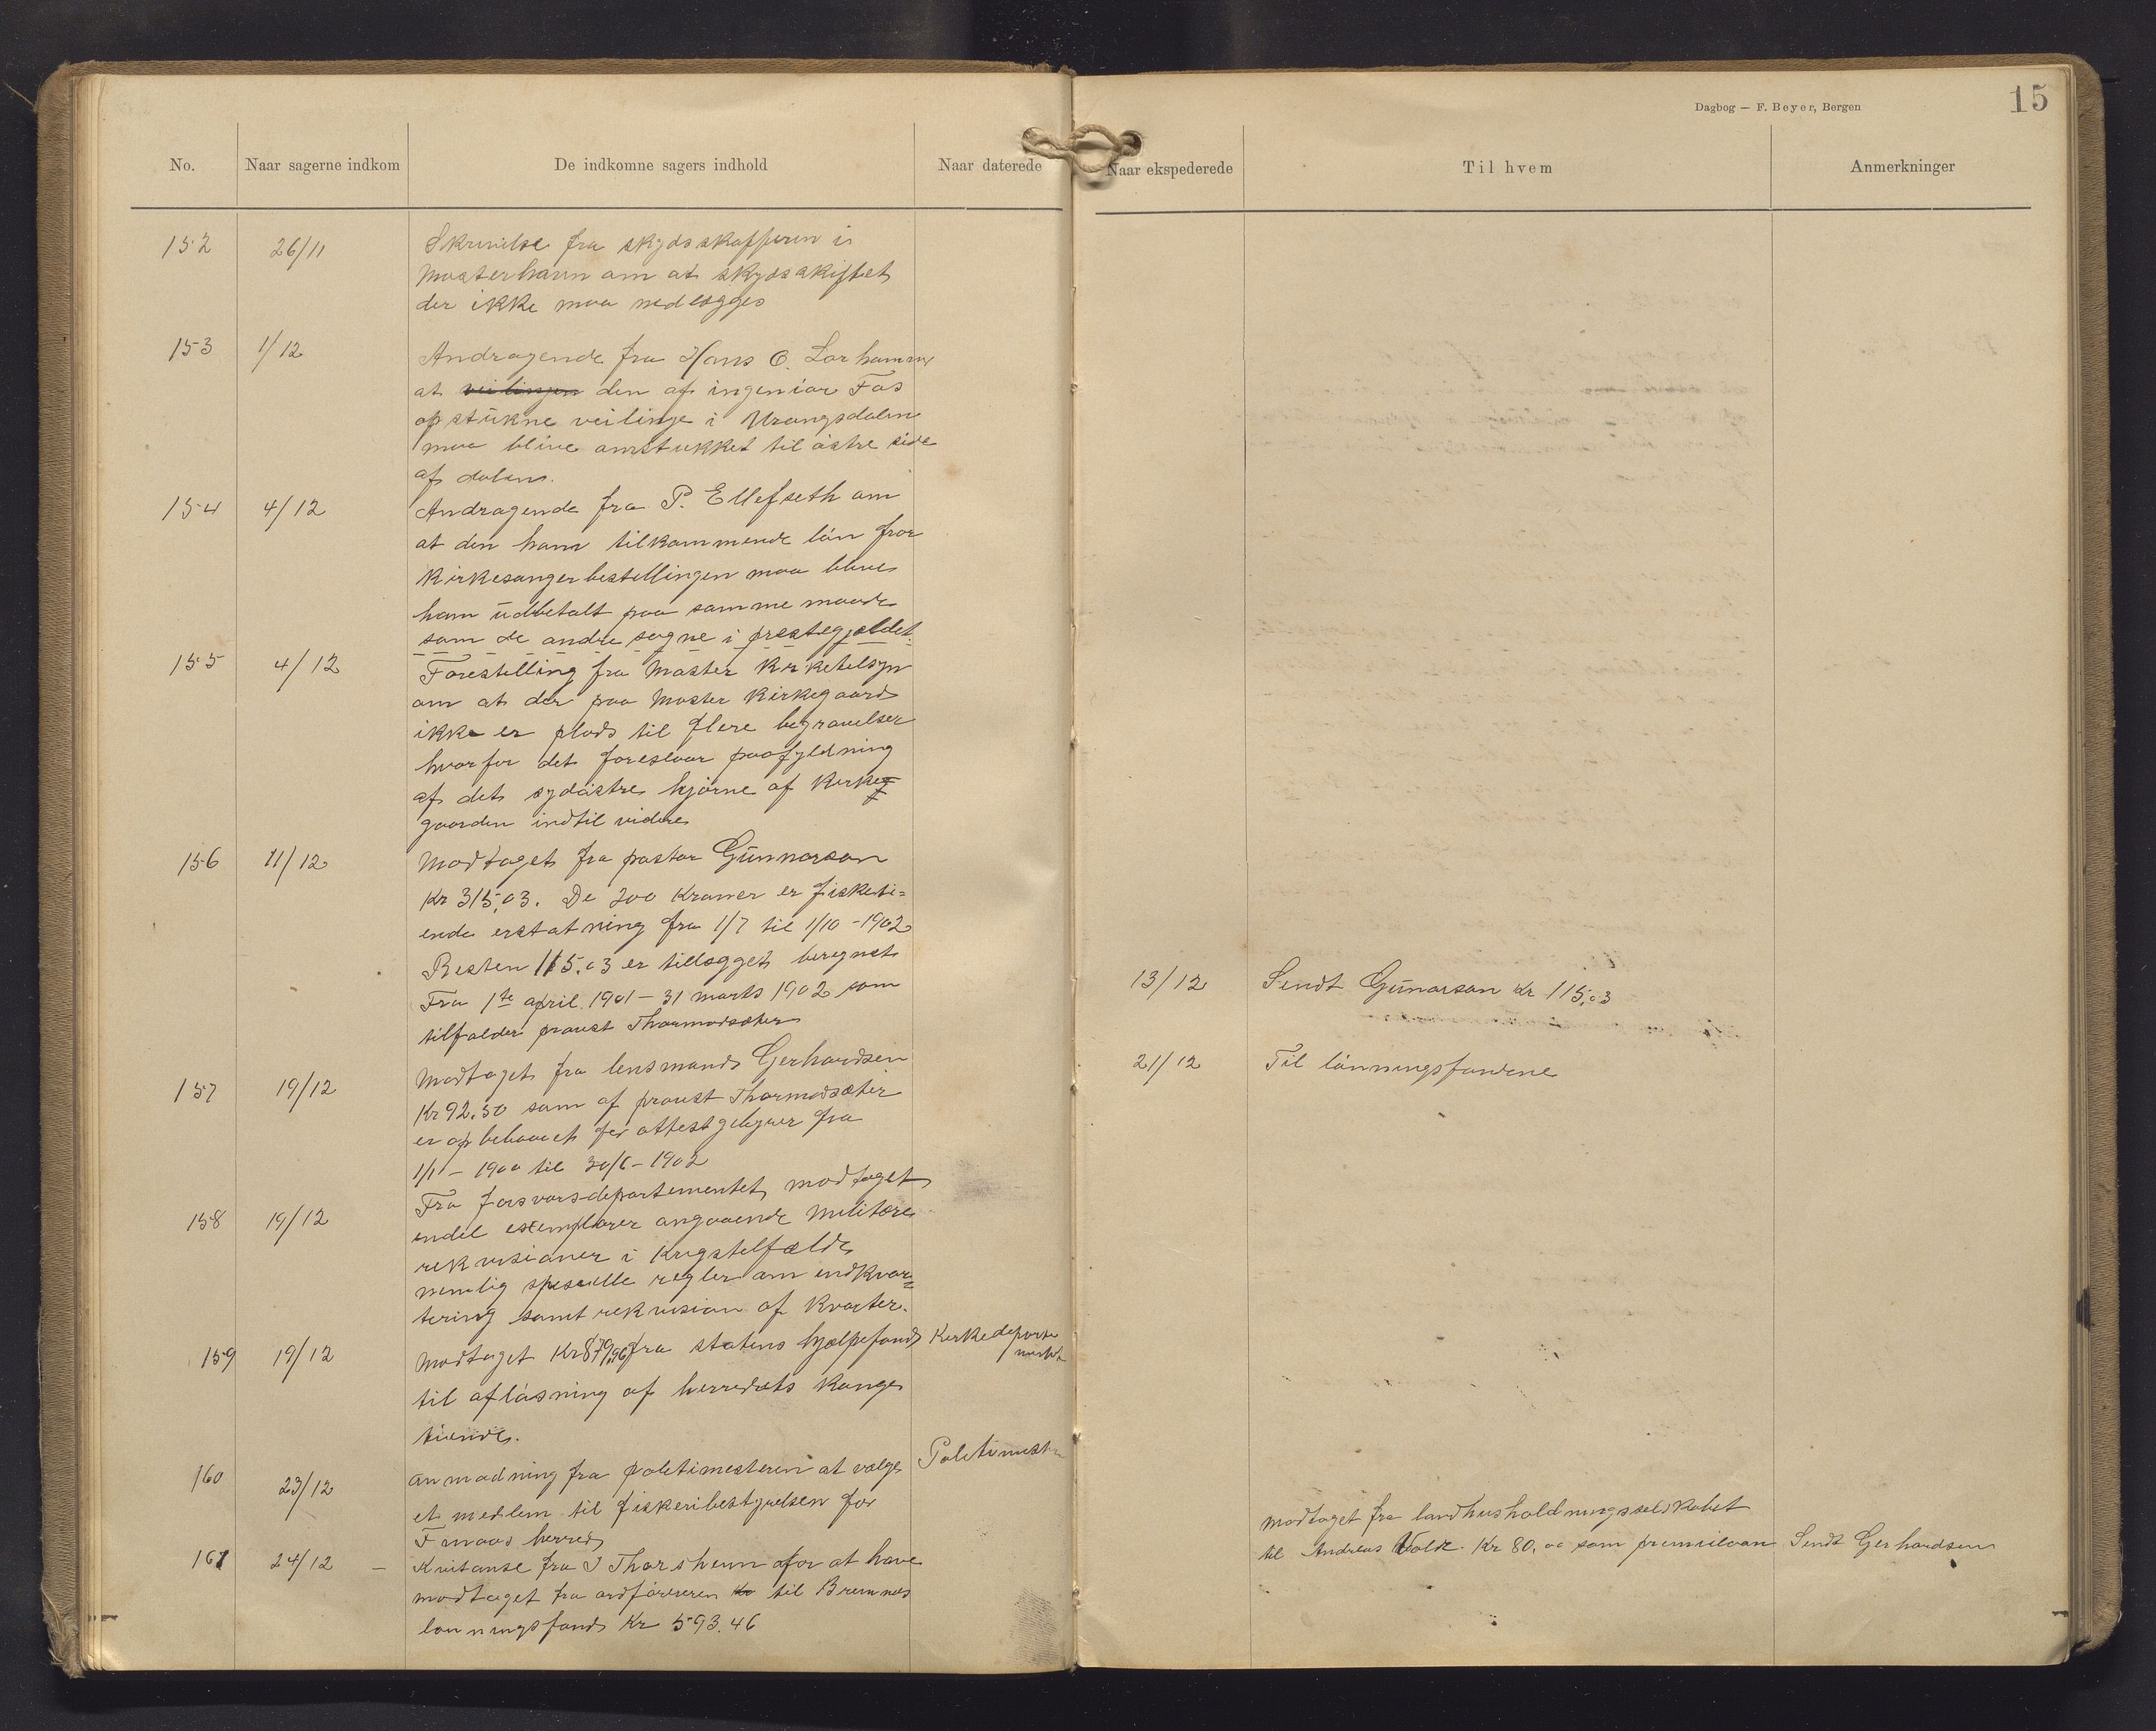 Dagbog — F. Beyer, Bergen
15
No.
Naar sagerne indkom
De indkomne sagers indhold
Naar daterede
Naar ekspederede
Til hvem
Anmerkninger
152 26/11 Skrivelse fra skydsskafferen i
Mosterhavn om at skydsskiftet
der ikke maa nedlægges
153 1/12 Andragende fra Hans O. Larhamme
at veilinjen den af ingeniør Fos
opstukne veilinje i Urangsdalen
maa blive omstukket til østre side
af dalen.
154 4/12 Andragende fra P. Ellefseth om
at den ham tilkommende løn for
kirkesangerbestillingen maa blive
ham udbetalt paa samme maade
som de andre sogne i prestegjældet.
155 4/12 Forestilling fra Moster Kirketilsyn
om at der paa Moster Kirkegaard
ikke er plads til flere begravelser
hvorfor det foreslaar paafyldning
af det sydøstre hjørne af Kirkeg=
gaarden indtil videre
156 11/12 Modtaget fra pastor Gunnarson
Kr 315,03. De 200 Kroner er fisketi=
ende erstatning fra 1/7 til 1/10 - 1902
Resten 115.03 er tillægget beregnet
Fra 1te april 1901 - 31 marts 1902 som
tilfalder provst Thormodsæter
13/12 Sendt Gunarson Kr 115,03
157 19/12 Modtaget fra lensmand Gerhardsen
Kr 92.50 som af provst Thormodsæter
er opbebaaret for attestgebyrer fra
1/1 - 1900 til 30/6 - 1902
21/12 Til lønningsfondene
158 19/12 Fra forsvarsdepartementet modtaget
endel exemplarer angaaende militære
rekvisioner i Krigstilfælde
nemlig spesielle regler om indkvar=
tering samt rekvision af Kvarter.
159 19/12 Modtaget Kr 879,96 fra statens hjælpefond Kirkedeparte
mentet
til afløsning af herredets Konge
tiende.
160 23/12 Anmodning fra politimesteren at vælge Politimester
et medlem til fiskeribestyrelsen for
Finaas herred
161 24/12 — Kvitanse fra J Thorsheim for at have
modtaget fra ordføreren til Bremnes
lønningsfond Kr 593.46
modtaget fra landhusholdningsselskabet
til Andreas Vold. Kr 80,00 som premielaan Sendt Gerhardsen